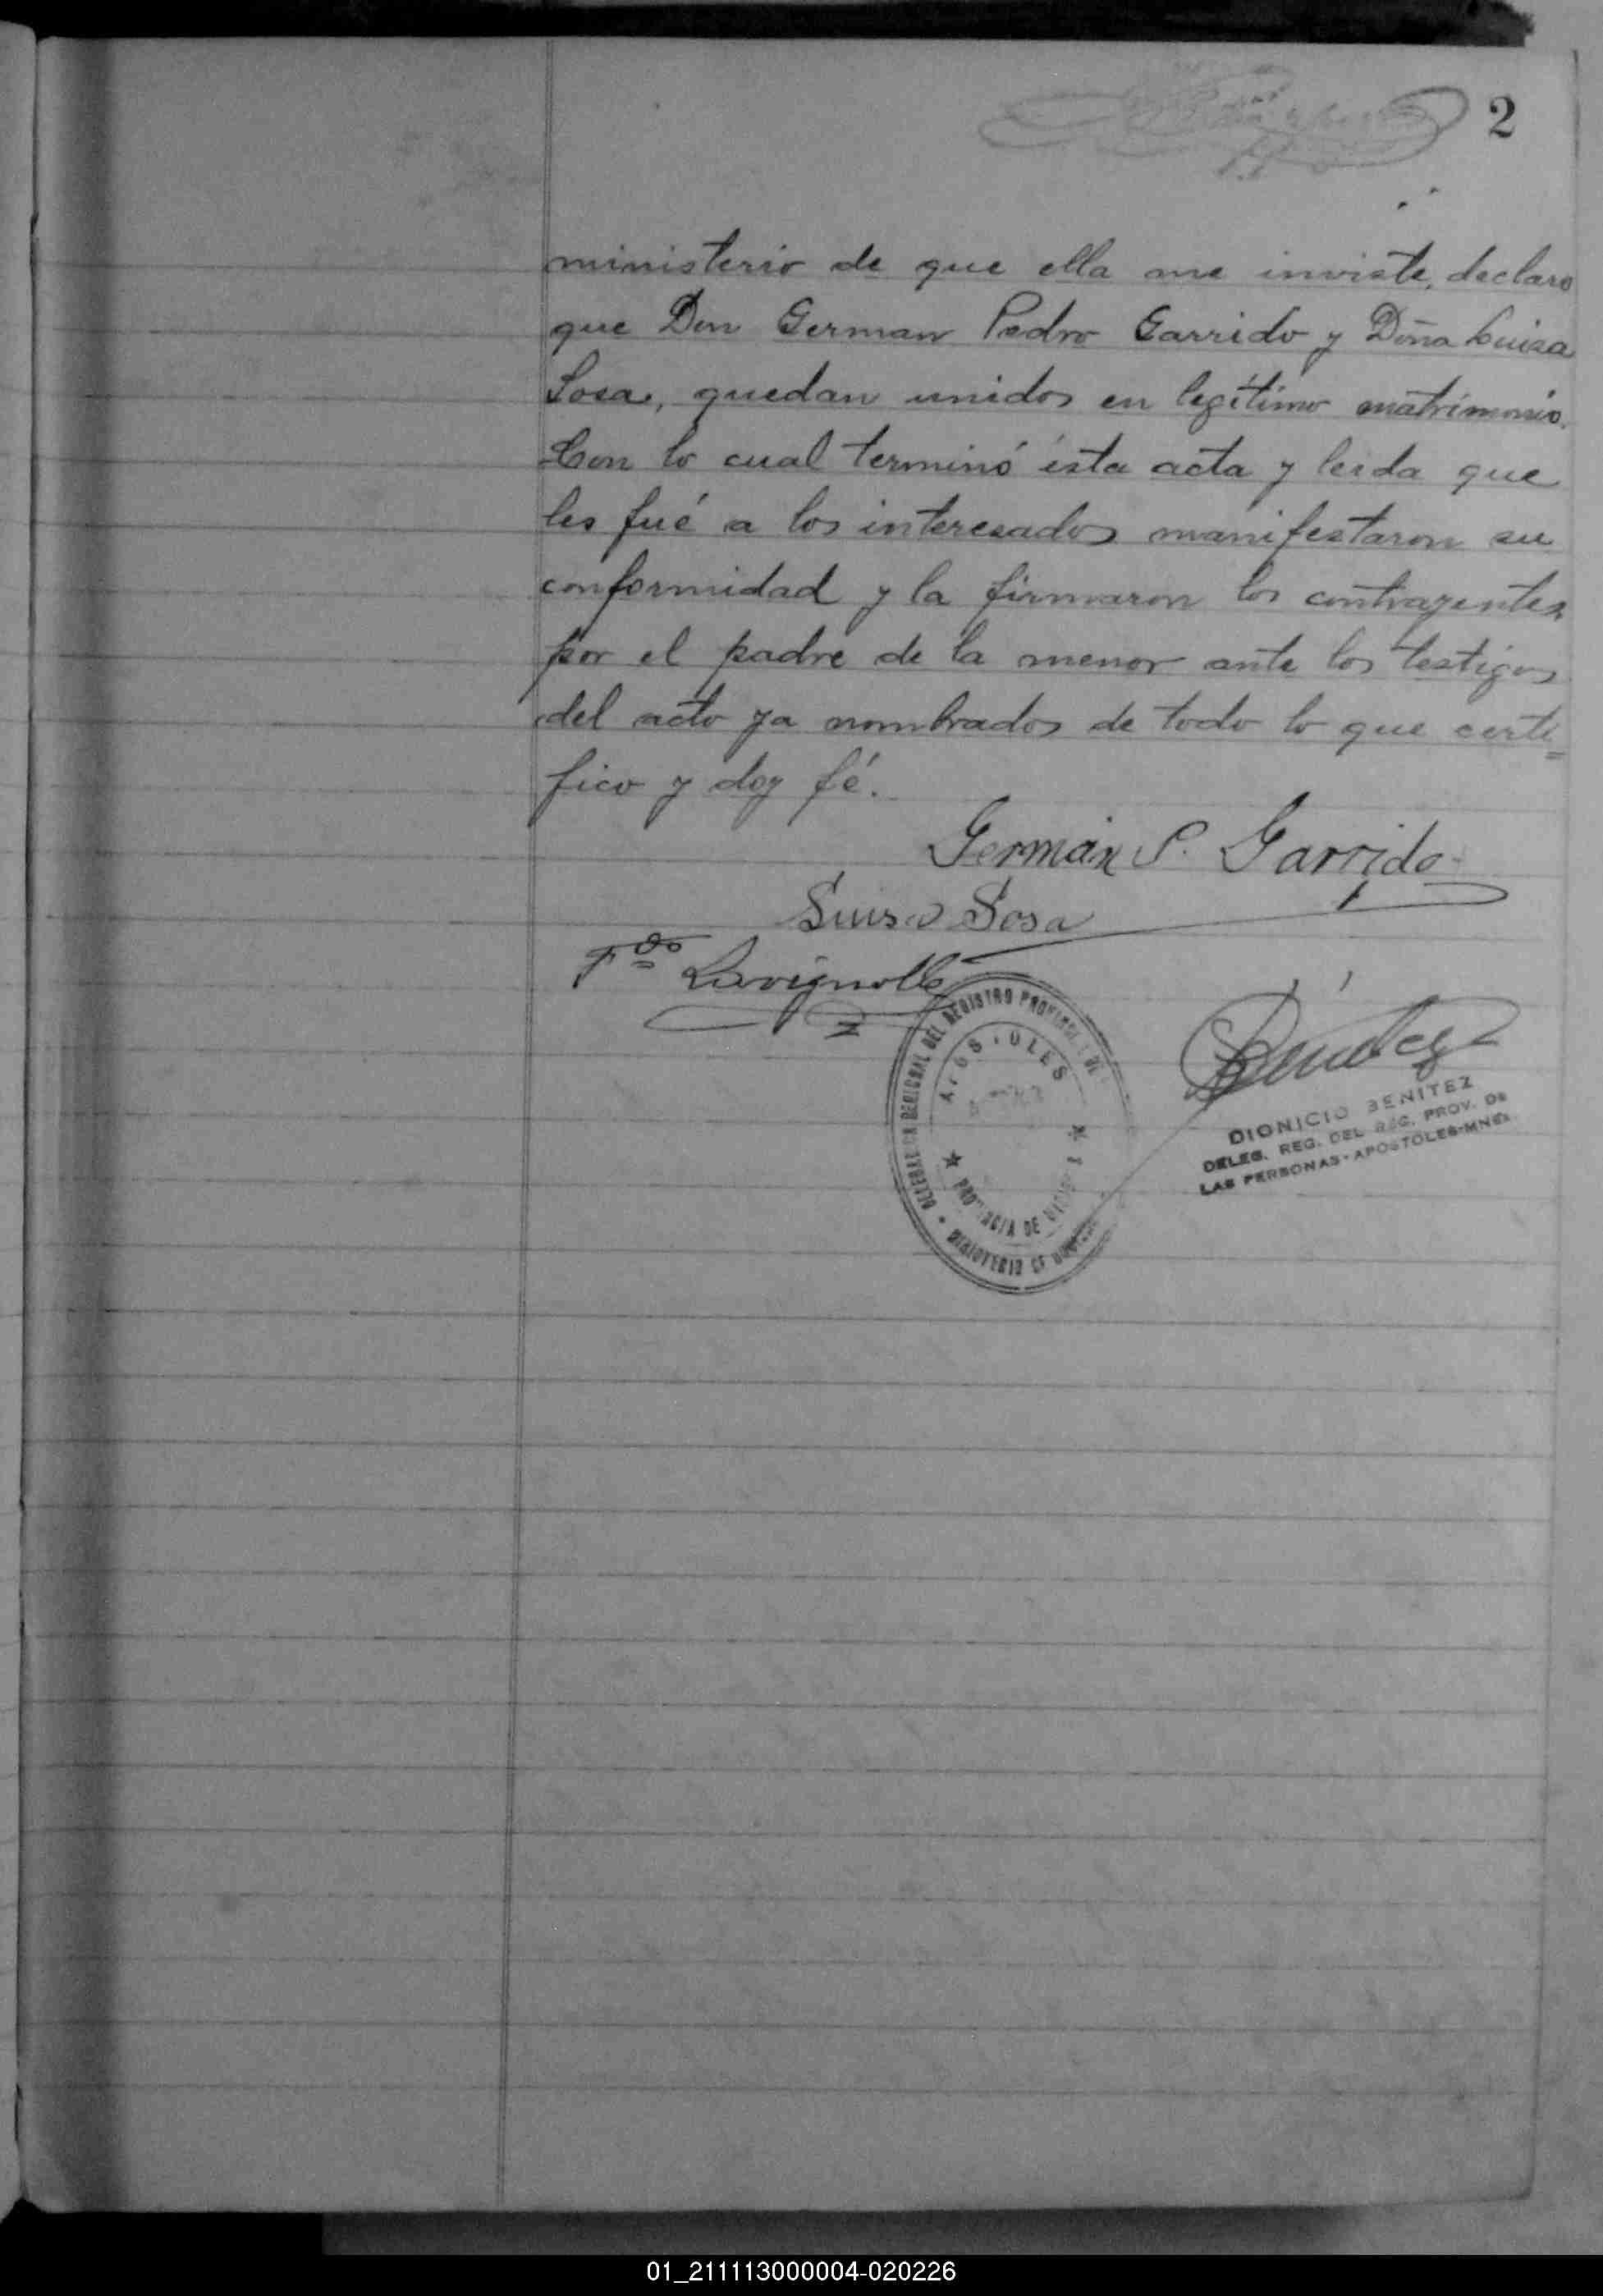 2
ministerio de que ella me inviste, declaro
que Don German Pedro Garrido y Doña Luisa
Sosa, quedan unidos en legítimo matrimonio.
Con lo cual terminó ésta acta y leida que
les fué a los interesados manifestaron su
conformidad y la firmaron los contrayentes,
por el padre de la menor ante los testigos
del acto ya nombrados de todo lo que certi=
fico y doy fé.
Germán P. Garrido
Luisa Sosa
Fdo Lavignolle
Benitez
DELEGACION REGIONAL DEL REGISTRO PROVINCIAL DE
APOSTOLES
PROVINCIA DE MISIONES
MINISTERIO DE
DIONICIO BENITEZ
DELEG. REG. DEL REG. PROV. DE
LAS PERSONAS-APOSTOLES-MNES
01_211113000004-020226